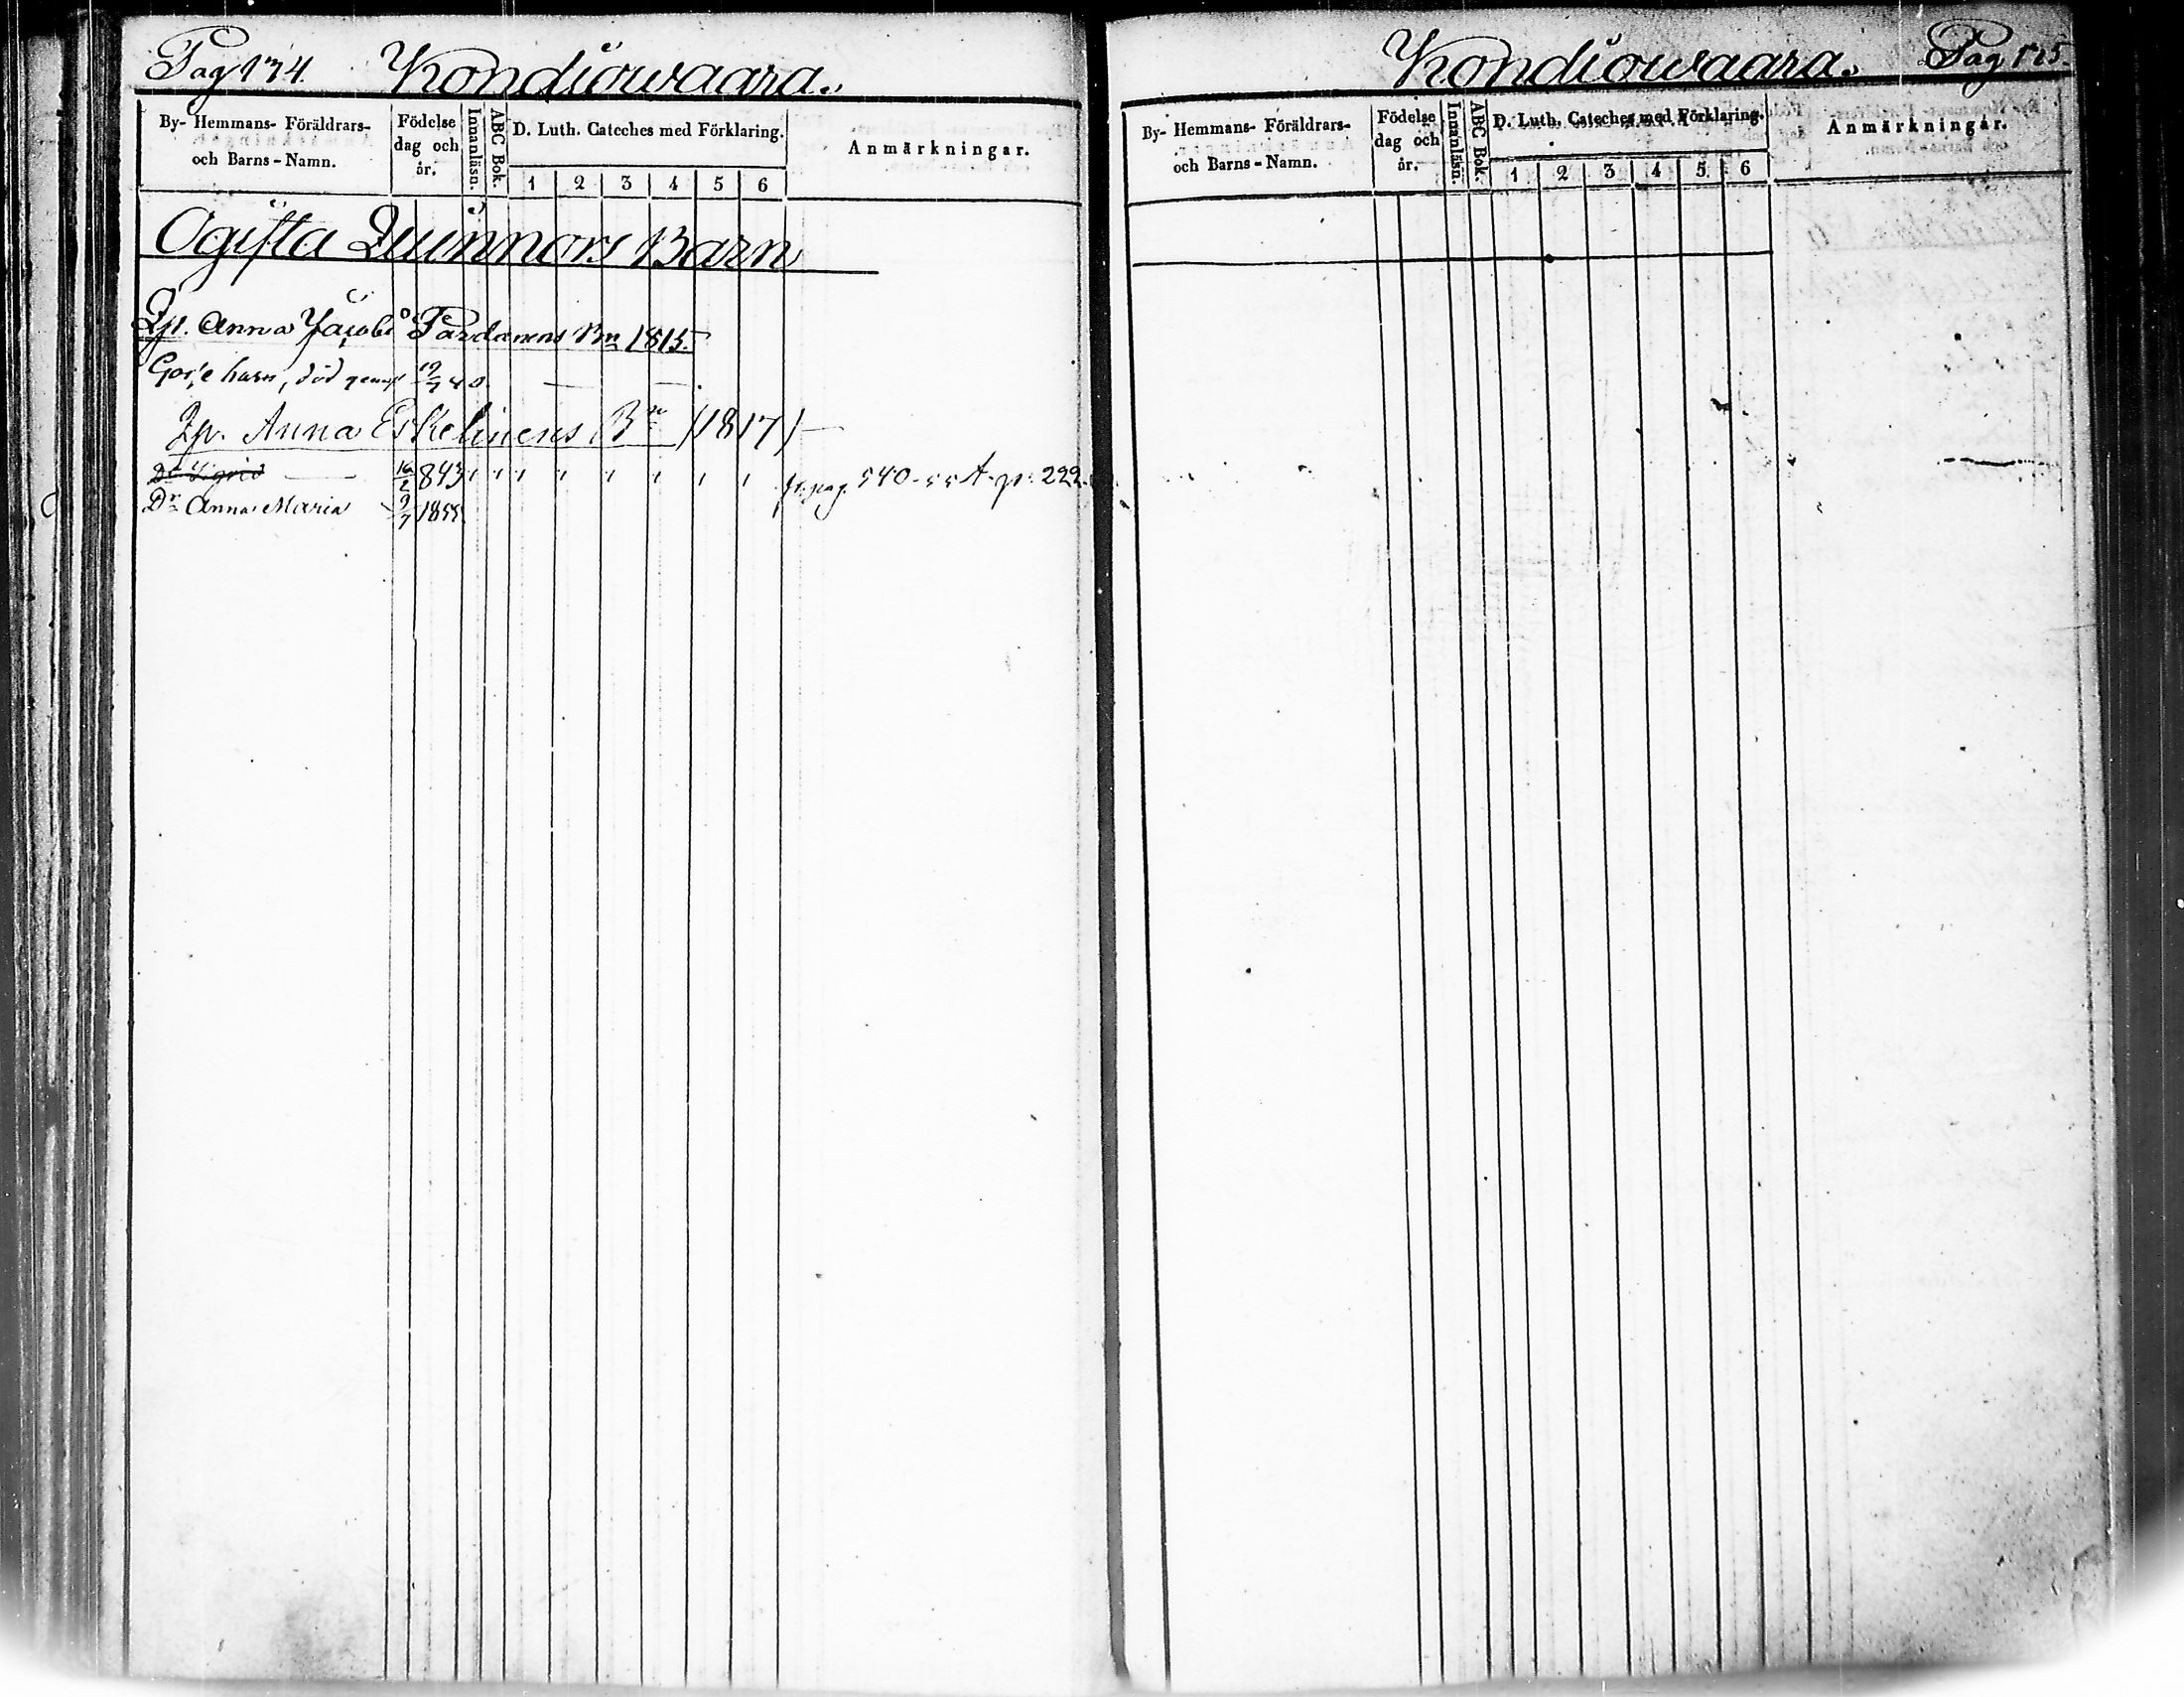 Pag 174. Kondiowaara.
By- Hemmans- Föräldrars- och Barns-Namn.
Födelse dag och år.
Innanläsn.
ABC Bok.
D. Luth. Cateches med Förklaring.
1 2 3 4 5 6
Anmärkningar.
Ogifta Quinnors Barn
Qp. Anna Jacobs Bn 1815.
barn, död 19/7 40.
Qp. Anna Eskelinens Bn (1817)
Dr Sigrid 16/2 843 fr. pag. 540 A. p. 222.
Dr Anna Maria 9/7 1855
Kondiowaara. Pag 175.
By- Hemmans- Föräldrars- och Barns-Namn.
Födelse dag och år.
Innanläsn.
ABC Bok.
D. Luth. Cateches med Förklaring.
1 2 3 4 5 6
Anmärkningar.